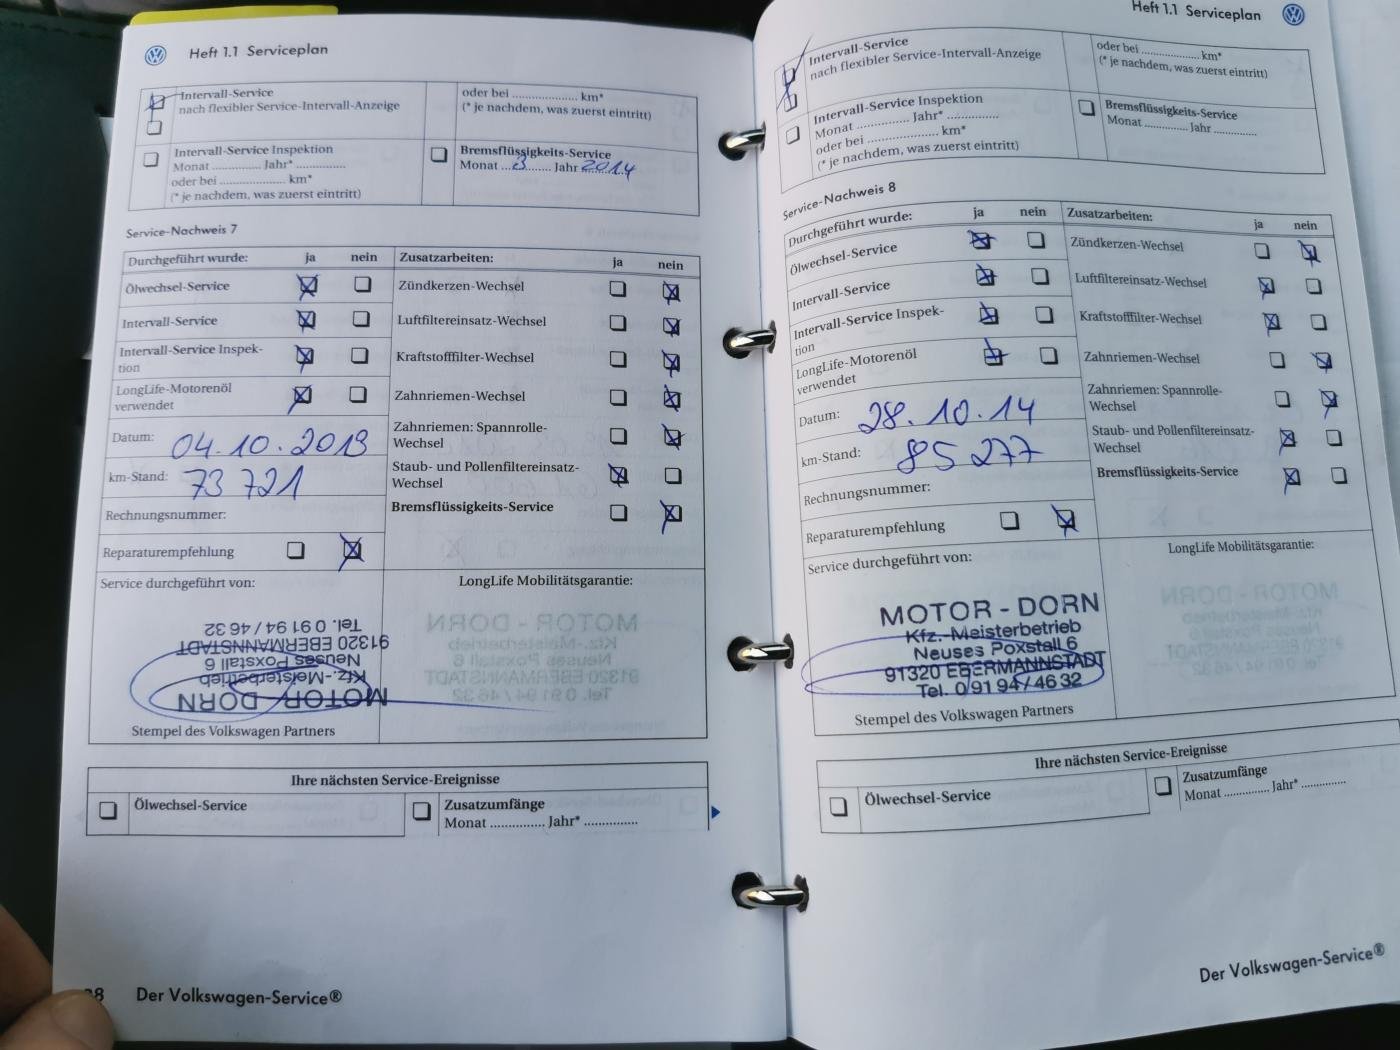 Heft 1.1 Serviceplan
Intervall-Service
nach flexibler Service-Intervall-Anzeige
oder bei .................... km*
(* je nachdem, was zuerst eintritt)
Intervall-Service Inspektion
Monat .............. Jahr* ..............
oder bei .................... km*
(* je nachdem, was zuerst eintritt)
Bremsflüssigkeits-Service
Monat ...3....... Jahr 2014
Service-Nachweis 7
Durchgeführt wurde: ja nein Zusatzarbeiten: ja nein
Ölwechsel-Service
Zündkerzen-Wechsel
Intervall-Service
Luftfiltereinsatz-Wechsel
Intervall-Service Inspek-
tion
Kraftstofffilter-Wechsel
LongLife-Motorenöl
verwendet
Zahnriemen-Wechsel
Datum: 04.10.2013
Zahnriemen: Spannrolle-
Wechsel
km-Stand: 73 721
Staub- und Pollenfiltereinsatz-
Wechsel
Rechnungsnummer:
Bremsflüssigkeits-Service
Reparaturempfehlung
Service durchgeführt von:
LongLife Mobilitätsgarantie:
MOTOR - DORN
Kfz.-Meisterbetrieb
Neuses Poxstall 6
91320 EBERMANNSTADT
Tel. 0 91 94 / 46 32
Stempel des Volkswagen Partners
Ihre nächsten Service-Ereignisse
Ölwechsel-Service
Zusatzumfänge
Monat .............. Jahr* ..............
Der Volkswagen-Service®
Heft 1.1 Serviceplan
Intervall-Service
nach flexibler Service-Intervall-Anzeige
oder bei .................... km*
(* je nachdem, was zuerst eintritt)
Intervall-Service Inspektion
Monat .............. Jahr* ..............
oder bei .................... km*
(* je nachdem, was zuerst eintritt)
Bremsflüssigkeits-Service
Monat .............. Jahr ..............
Service-Nachweis 8
Durchgeführt wurde: ja nein Zusatzarbeiten: ja nein
Ölwechsel-Service
Zündkerzen-Wechsel
Intervall-Service
Luftfiltereinsatz-Wechsel
Intervall-Service Inspek-
tion
Kraftstofffilter-Wechsel
LongLife-Motorenöl
verwendet
Zahnriemen-Wechsel
Datum: 28.10.14
Zahnriemen: Spannrolle-
Wechsel
km-Stand: 85 277
Staub- und Pollenfiltereinsatz-
Wechsel
Rechnungsnummer:
Bremsflüssigkeits-Service
Reparaturempfehlung
Service durchgeführt von:
LongLife Mobilitätsgarantie:
MOTOR - DORN
Kfz.-Meisterbetrieb
Neuses Poxstall 6
91320 EBERMANNSTADT
Tel. 0 91 94 / 46 32
Stempel des Volkswagen Partners
Ihre nächsten Service-Ereignisse
Ölwechsel-Service
Zusatzumfänge
Monat .............. Jahr* ..............
Der Volkswagen-Service®